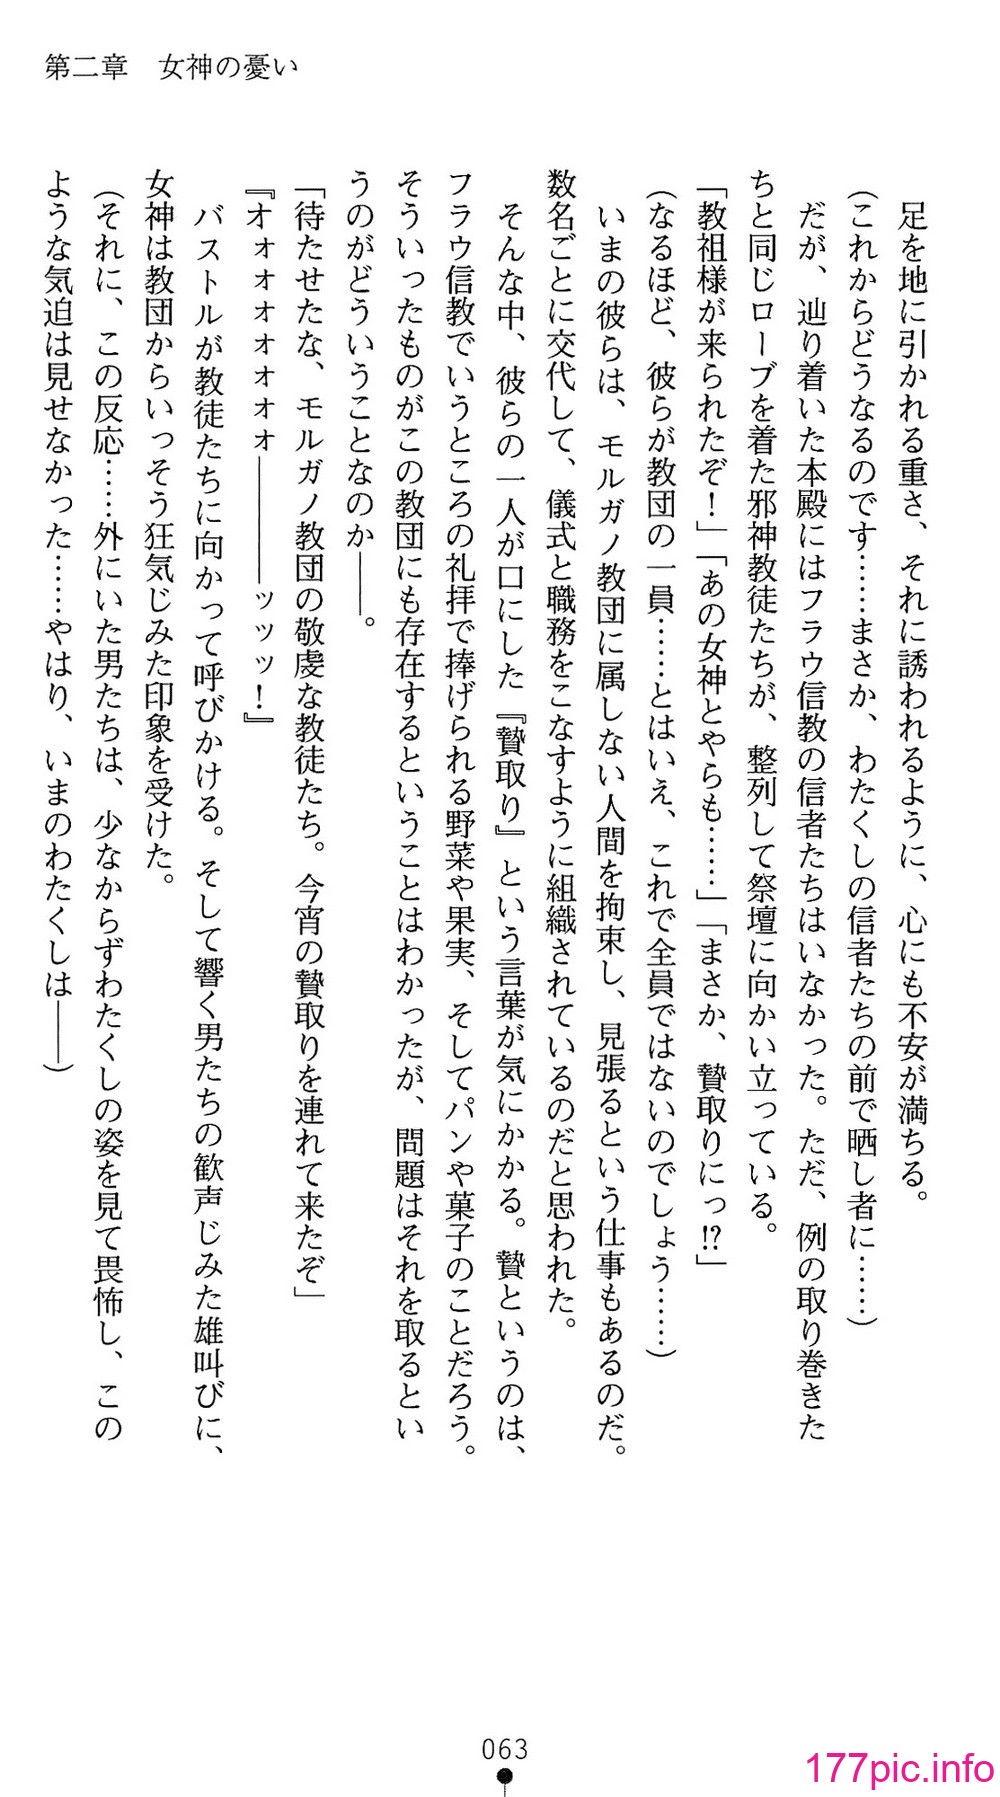 第二章　女神の憂い
　足を地に引かれる重さ、それに誘われるように、心にも不安が満ちる。
（これからどうなるのです……まさか、わたくしの信者たちの前で晒し者に……）
　だが、辿り着いた本殿にはフラウ信教の信者たちはいなかった。ただ、例の取り巻きた
ちと同じローブを着た邪神教徒たちが、整列して祭壇に向かい立っている。
「教祖様が来られたぞ！」「あの女神とやらも……」「まさか、贄取りにっ!?」
（なるほど、彼らが教団の一員……とはいえ、これで全員ではないのでしょう……）
　いまの彼らは、モルガノ教団に属しない人間を拘束し、見張るという仕事もあるのだ。
数名ごとに交代して、儀式と職務をこなすように組織されているのだと思われた。
　そんな中、彼らの一人が口にした『贄取り』という言葉が気にかかる。贄というのは、
フラウ信教でいうところの礼拝で捧げられる野菜や果実、そしてパンや菓子のことだろう。
そういったものがこの教団にも存在するということはわかったが、問題はそれを取るとい
うのがどういうことなのか――。
「待たせたな、モルガノ教団の敬虔な教徒たち。今宵の贄取りを連れて来たぞ」
『オォォォォォォ――――ッッッ！』
　バストルが教徒たちに向かって呼びかける。そして響く男たちの歓声じみた雄叫びに、
女神は教団からいっそう狂気じみた印象を受けた。
（それに、この反応……外にいた男たちは、少なからずわたくしの姿を見て畏怖し、この
ような気迫は見せなかった……やはり、いまのわたくしは――）
063
177pic.info